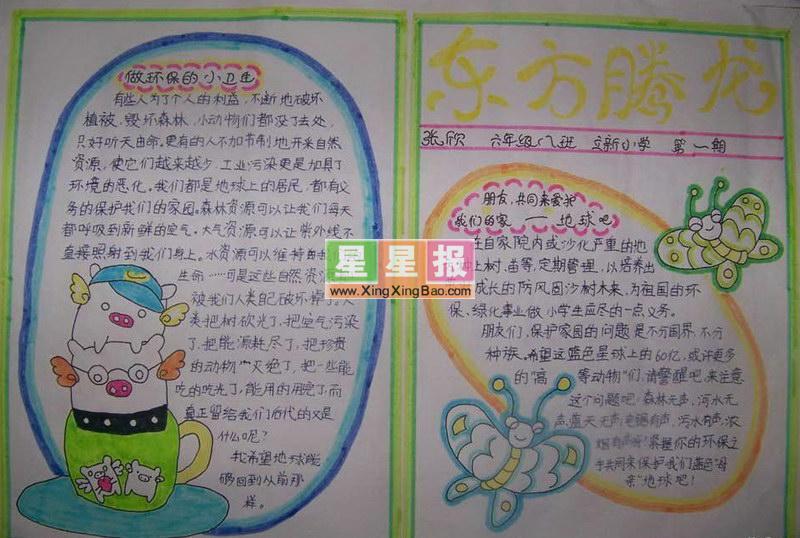 做环保的小卫生
有些人为了个人的利益，不断地破坏
植被，毁坏森林，小动物们都没了去处，
只好听天由命。更有的人不加节制地开采自然
资源，使它们越来越少，工业污染更是加具了
环境的恶化。我们都是地球上的居民，都有义
务的保护我们的家园。森林资源可以让我们每天
都呼吸到新鲜的空气。大气资源可以让紫外线不
直接照射到我们身上。水资源可以维持
生命……可是这些自然资源
被我们人类自己破坏掉了。人
类把树砍光了，把空气污染
了，把能源耗尽了，把珍贵
的动物“灭绝了，把一些能
吃的吃光了，能用的用完了而
真正留给我们后代的又是
什么呢？
我希望地球能
够回到从前那
样。
东方腾龙
张欣 六年级八班 立新小学 第一期
朋友，共同来爱护
我们的家——地球吧
在自家院内或沙化严重的地
上树、苗等，定期管理，以培养出
成长的防风固沙树木来，为祖国的环
保、绿化事业做小学生应尽的一点义务。
朋友们，保护家园的问题是不分国界、不分
种族。希望这蓝色星球上的60亿，或许更多
的“高等动物”们，请警醒吧，来注意
这个问题吧！森林无声，河水无
声，蓝天无声；电锯有声，污水有声，浓
烟有声！掌握你的环保之
手共同来保护我们蓝色“母
亲”地球吧！
星星报
www.XingXingBao.com